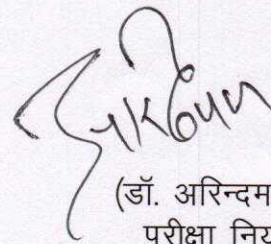 (डॉ. अरिन्दम
परीक्षा निय